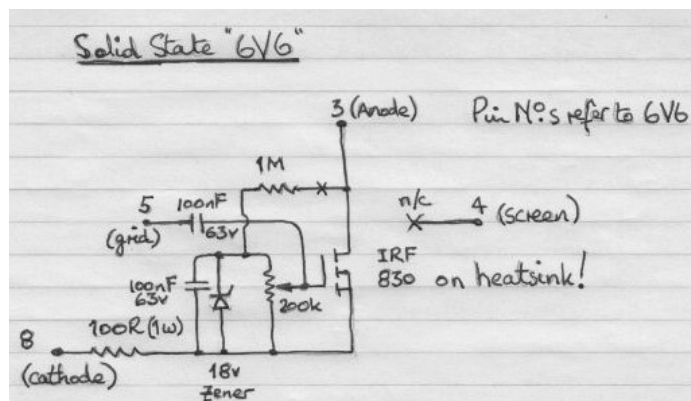 Solid State "6V6"
3 (Anode)
Pin Nos refer to 6V6
1M
n/c
5
100nF
4 (screen)
(grid)
63v
IRF
830 on heatsink!
100nF
63v
200k
100R (1w)
8
(cathode)
18v
Zener